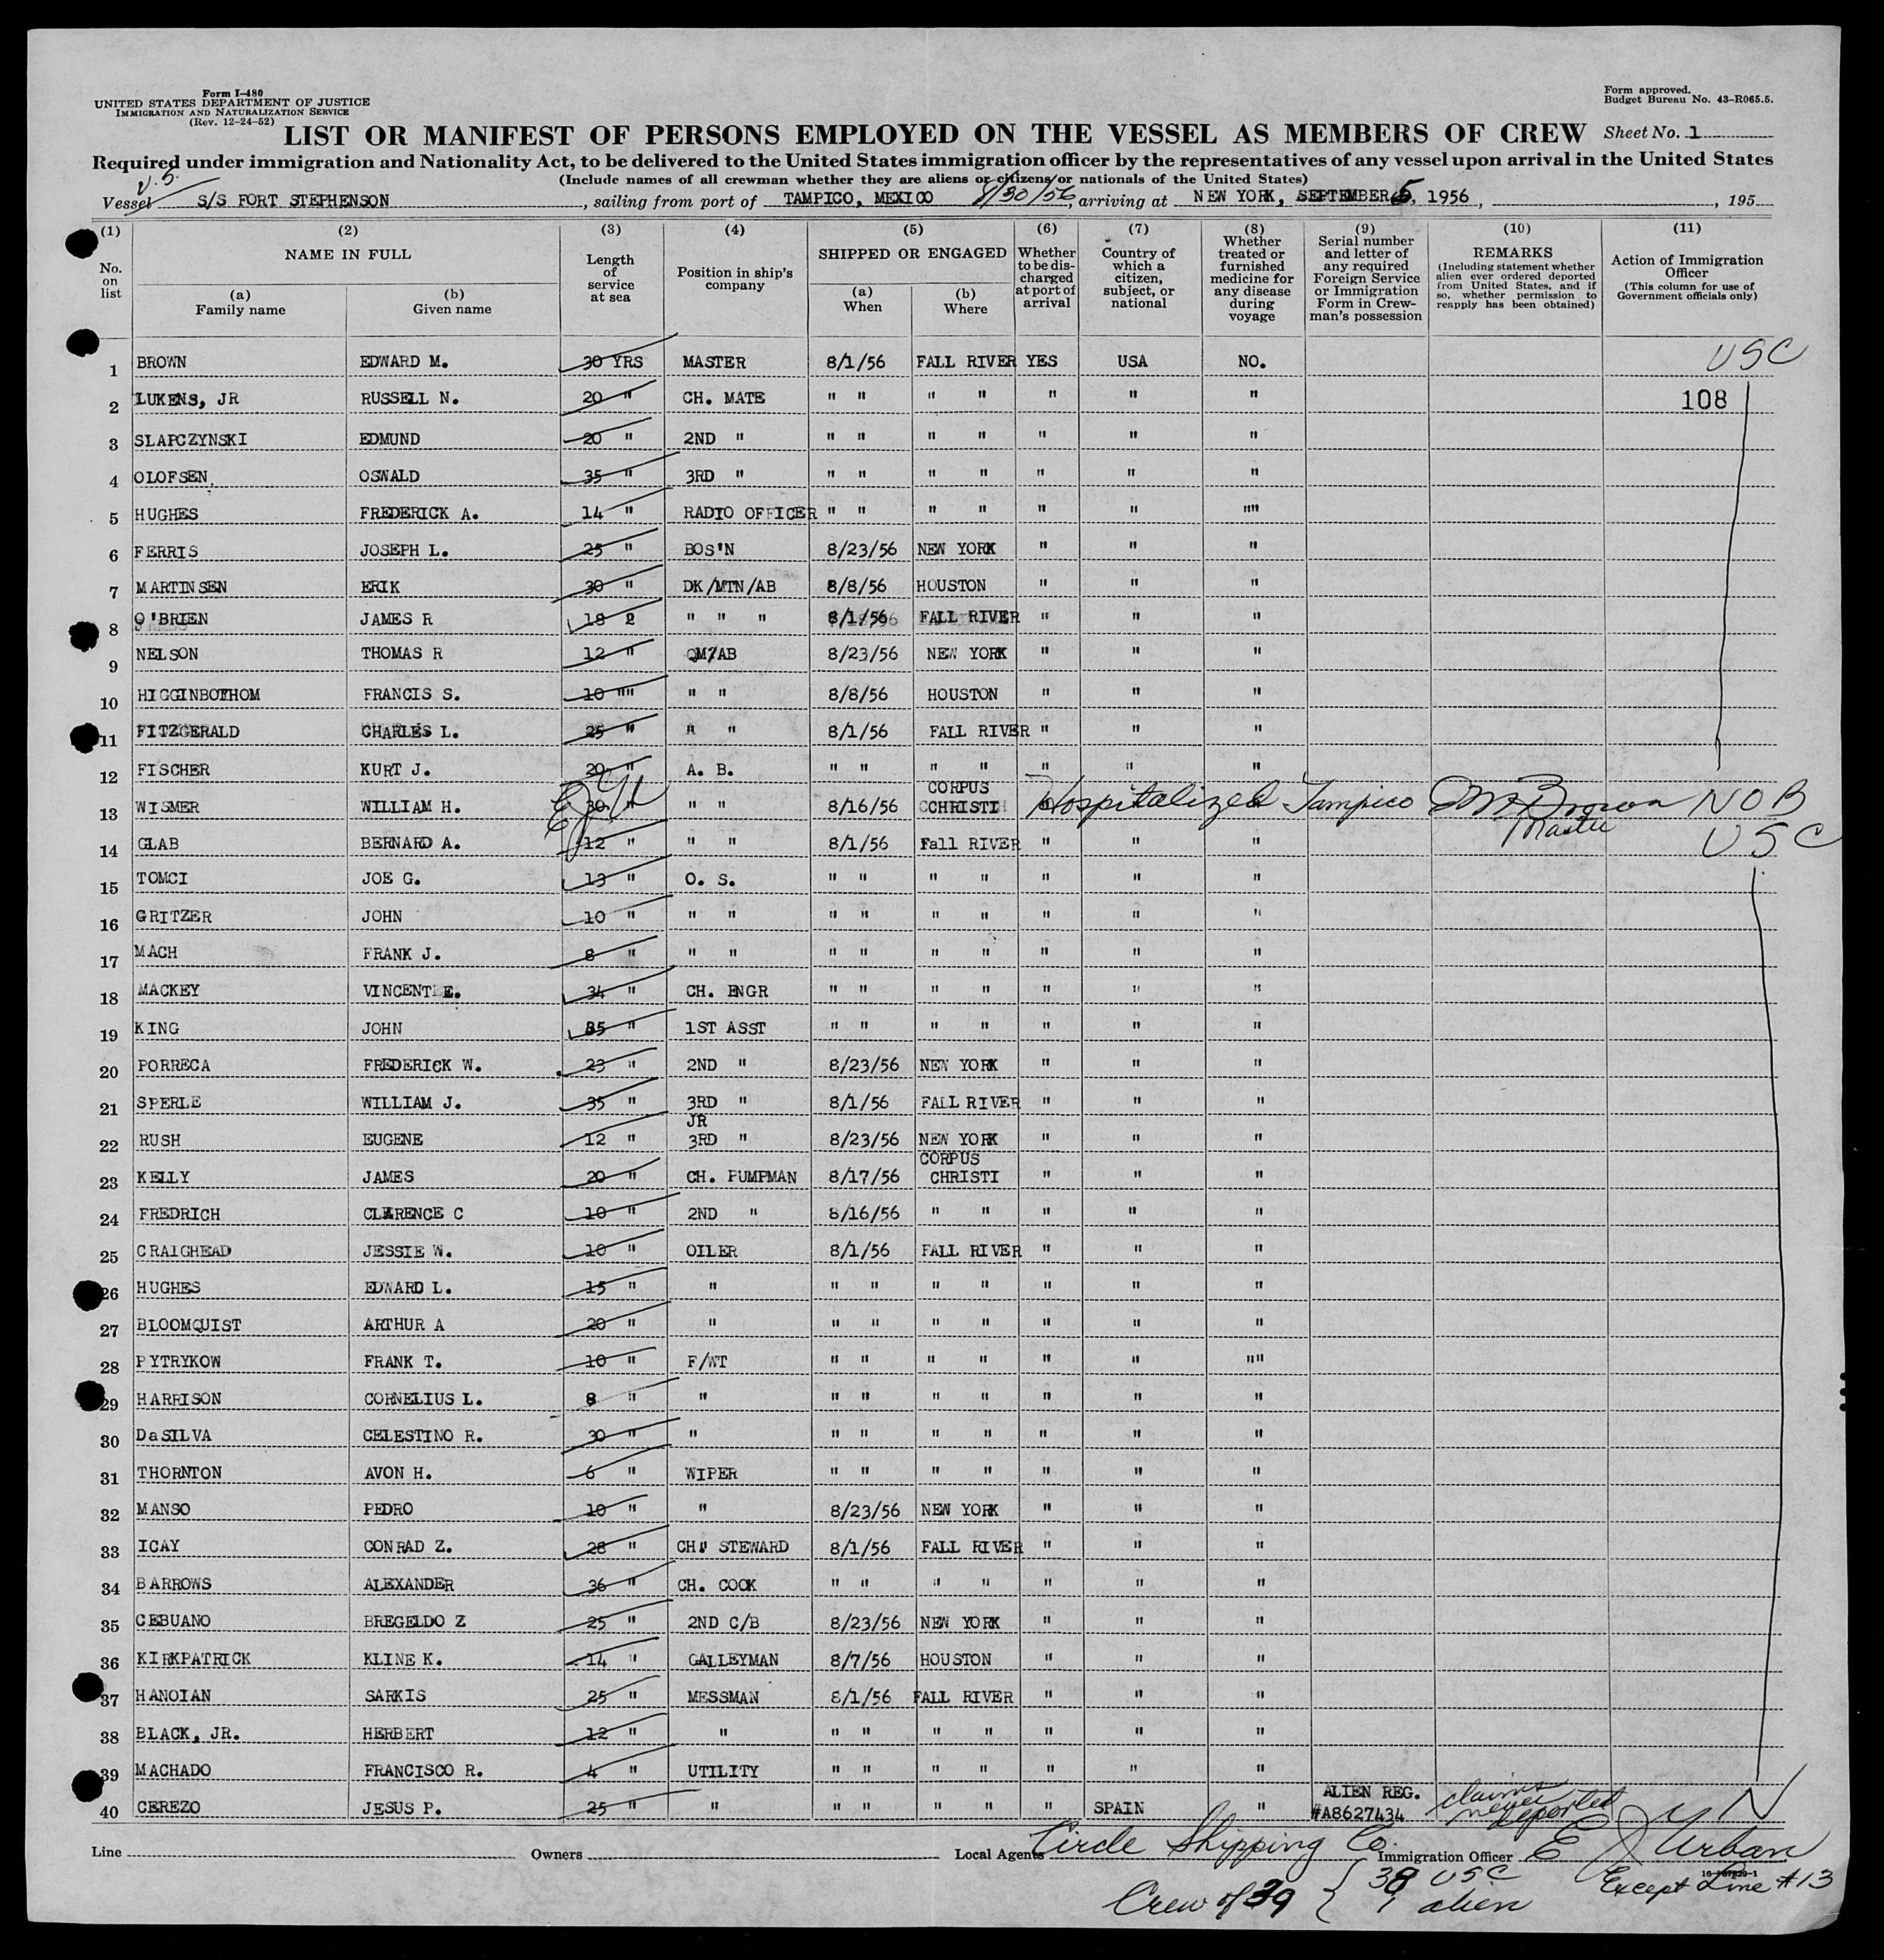 Form I-480
UNITED STATES DEPARTMENT OF JUSTICE
IMMIGRATION AND NATURALIZATION SERVICE
(Rev. 12-24-52)
Form approved.
Budget Bureau No. 43-R065.5.
LIST OR MANIFEST OF PERSONS EMPLOYED ON THE VESSEL AS MEMBERS OF CREW Sheet No. 1
Required under immigration and Nationality Act, to be delivered to the United States immigration officer by the representatives of any vessel upon arrival in the United States
(Include names of all crewman whether they are aliens or citizens or nationals of the United States)
U.S.
Vessel S/S FORT STEPHENSON, sailing from port of TAMPICO, MEXICO 8/30/56, arriving at NEW YORK, SEPTEMBER 5, 1956, , 195
(1) No. on list
(2) NAME IN FULL
(a) Family name
(b) Given name
(3) Length of service at sea
(4) Position in ship's company
(5) SHIPPED OR ENGAGED
(a) When
(b) Where
(6) Whether to be discharged at port of arrival
(7) Country of which a citizen, subject, or national
(8) Whether treated or furnished medicine for any disease during voyage
(9) Serial number and letter of any required Foreign Service or Immigration Form in Crewman's possession
(10) REMARKS (Including statement whether alien ever ordered deported from United States, and if so, whether permission to reapply has been obtained)
(11) Action of Immigration Officer (This column for use of Government officials only)
1 BROWN EDWARD M. 30 YRS MASTER 8/1/56 FALL RIVER YES USA NO. USC
2 LUKENS, JR RUSSELL N. 20 " CH. MATE " " " " " " " 108
3 SLAPCZYNSKI EDMUND 20 " 2ND " " " " " " " "
4 OLOFSEN, OSWALD 35 " 3RD " " " " " " " "
5 HUGHES FREDERICK A. 14 " RADIO OFFICER " " " " " " ""
6 FERRIS JOSEPH L. 25 " BOS'N 8/23/56 NEW YORK " " "
7 MARTINSEN ERIK 30 " DK/MTN/AB 8/8/56 HOUSTON " " "
8 O'BRIEN JAMES R 18 2 " " " 8/1/56 FALL RIVER " " "
9 NELSON THOMAS R 12 " QM/AB 8/23/56 NEW YORK " " "
10 HIGGINBOTHOM FRANCIS S. 10 "" " " 8/8/56 HOUSTON " " "
11 FITZGERALD CHARLES L. 25 " " " 8/1/56 FALL RIVER " " "
12 FISCHER KURT J. 20 " A. B. " " " " " " "
13 WISMER WILLIAM H. 30 " " " 8/16/56 CORPUS CHRISTI Hospitalized Tampico EM Brown Master NOB
14 GLAB BERNARD A. 12 " " " 8/1/56 Fall RIVER " " " USC
15 TOMCI JOE G. 13 " O. S. " " " " " " "
16 GRITZER JOHN 10 " " " " " " " " " "
17 MACH FRANK J. 8 " " " " " " " " " "
18 MACKEY VINCENT E. 34 " CH. ENGR " " " " " " "
19 KING JOHN 35 " 1ST ASST " " " " " " "
20 PORRECA FREDERICK W. 23 " 2ND " 8/23/56 NEW YORK " " "
21 SPERLE WILLIAM J. 35 " 3RD " 8/1/56 FALL RIVER " " "
22 RUSH EUGENE 12 " JR 3RD " 8/23/56 NEW YORK " " "
23 KELLY JAMES 20 " CH. PUMPMAN 8/17/56 CORPUS CHRISTI " " "
24 FREDRICH CLARENCE C 10 " 2ND " 8/16/56 " " " " "
25 CRAIGHEAD JESSIE W. 10 " OILER 8/1/56 FALL RIVER " " "
26 HUGHES EDWARD L. 15 " " " " " " " " "
27 BLOOMQUIST ARTHUR A 20 " " " " " " " " "
28 PYTRYKOW FRANK T. 10 " F/WT " " " " " " ""
29 HARRISON CORNELIUS L. 8 " " " " " " " " "
30 DaSILVA CELESTINO R. 30 " " " " " " " " "
31 THORNTON AVON H. 6 " WIPER " " " " " " "
32 MANSO PEDRO 10 " " 8/23/56 NEW YORK " " "
33 ICAY CONRAD Z. 28 " CH. STEWARD 8/1/56 FALL RIVER " " "
34 BARROWS ALEXANDER 36 " CH. COOK " " " " " " "
35 CEBUANO BREGELDO Z 25 " 2ND C/B 8/23/56 NEW YORK " " "
36 KIRKPATRICK KLINE K. 14 " GALLEYMAN 8/7/56 HOUSTON " " "
37 HANOIAN SARKIS 25 " MESSMAN 8/1/56 FALL RIVER " " "
38 BLACK, JR. HERBERT 12 " " " " " " " " "
39 MACHADO FRANCISCO R. 4 " UTILITY " " " " " " "
40 CEREZO JESUS P. 25 " " " " " " " SPAIN " ALIEN REG. #A8627434 claims never deported
Line Owners Local Agents Circle Shipping Co. Immigration Officer E J Urban
Except Line #13
Crew of 39 { 38 USC
1 alien